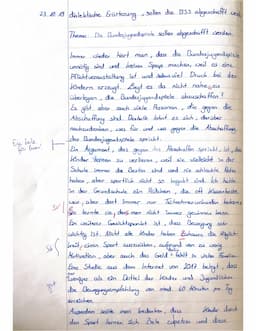 23.10.19 dialektische Erörterung - sollen die BJS abgeschafft werden
Thema: Die Bundesjugendspiele sollen abgeschafft werden.
Immer wieder hört man, dass die Bundesjugendspiele
unnötig sind und keinen Spass machen, weil es eine
Pflichtveranstaltung ist und dabei viel Druck bei den
Kindern erzeugt. Liegt es da nicht nahe, zu
überlegen, die Bundesjugendspiele abzuschaffen?
Es gibt aber auch viele Personen, die gegen die
Abschaffung sind. Deshalb lohnt es sich, darüber
nachzudenken, was für und was gegen die Abschaffung
der Bundesjugendspiele spricht.
Ein Argument, das gegen das Abschaffen spricht, ist, dass
Kinder lernen zu verlieren, weil sie vielleicht in der
Schule immer die Besten sind und nie schlechte Noten
haben, aber sportlich nicht so begabt sind. Ich hatte
in der Grundschule ein Mädchen, die oft Klassenbeste
war, aber dort immer nur Teilnehmerurkunden bekam.
So lernte sie, dass man nicht immer gewinnen kann.
Ein weiterer Gesichtspunkt ist, dass Bewegung sehr
wichtig ist. Nicht alle Kinder haben Zuhause die Möglich-
keit, einen Sport auszuüben, aufgrund von zu wenig
Motivation, aber auch das Geld fehlt in vielen Familien.
Eine Studie aus dem Internet von 2017 belegt, dass
weniger als ein Drittel der Kinder und Jugendlichen
die Bewegungsempfehlung von mind. 60 Minuten pro Tag
erreichen.
Ausserdem sollte man bedenken, dass Kinder durch
den Sport lernen sich Ziele zu setzen und diese